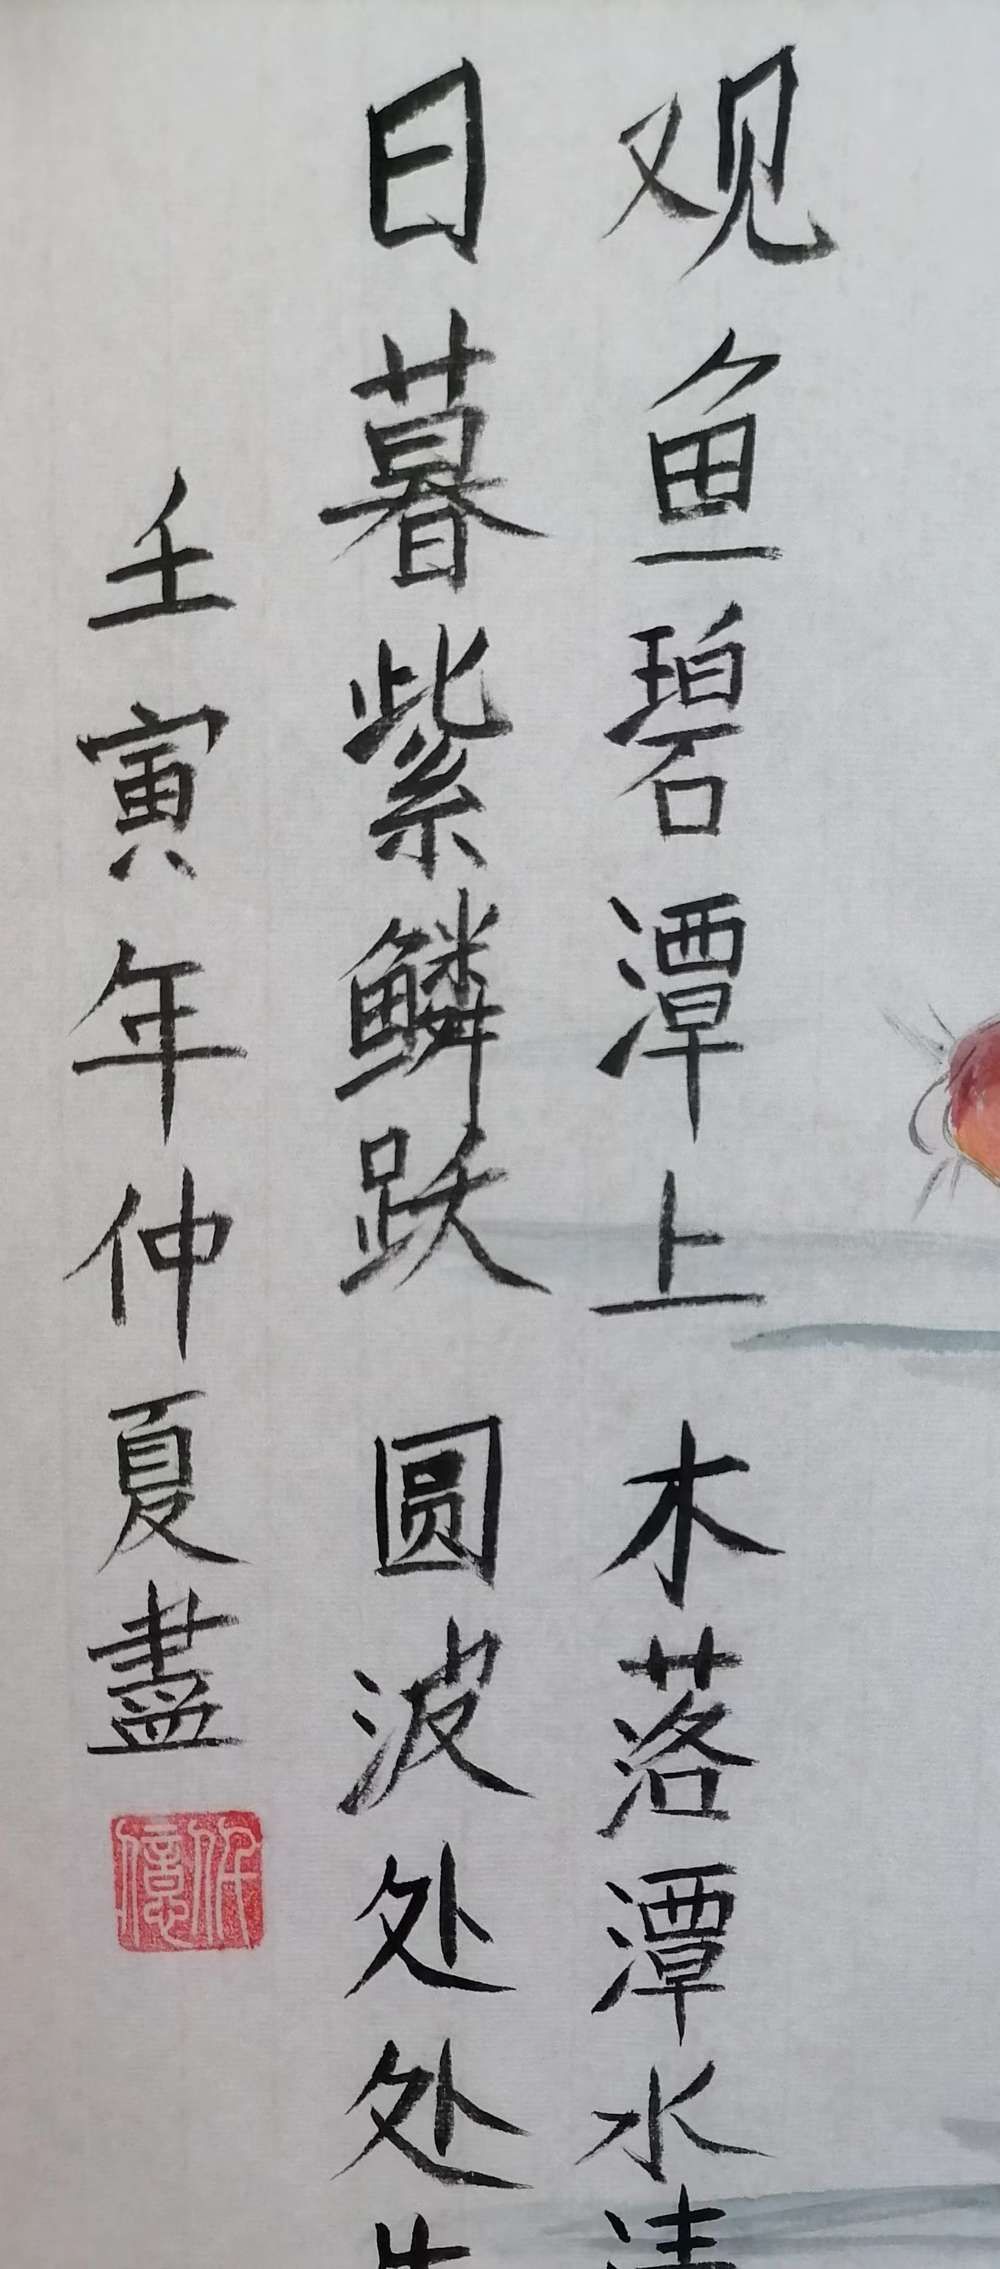 观鱼碧潭上 木落潭水清
日暮紫鳞跃 圆波处处生
壬寅年仲夏盡